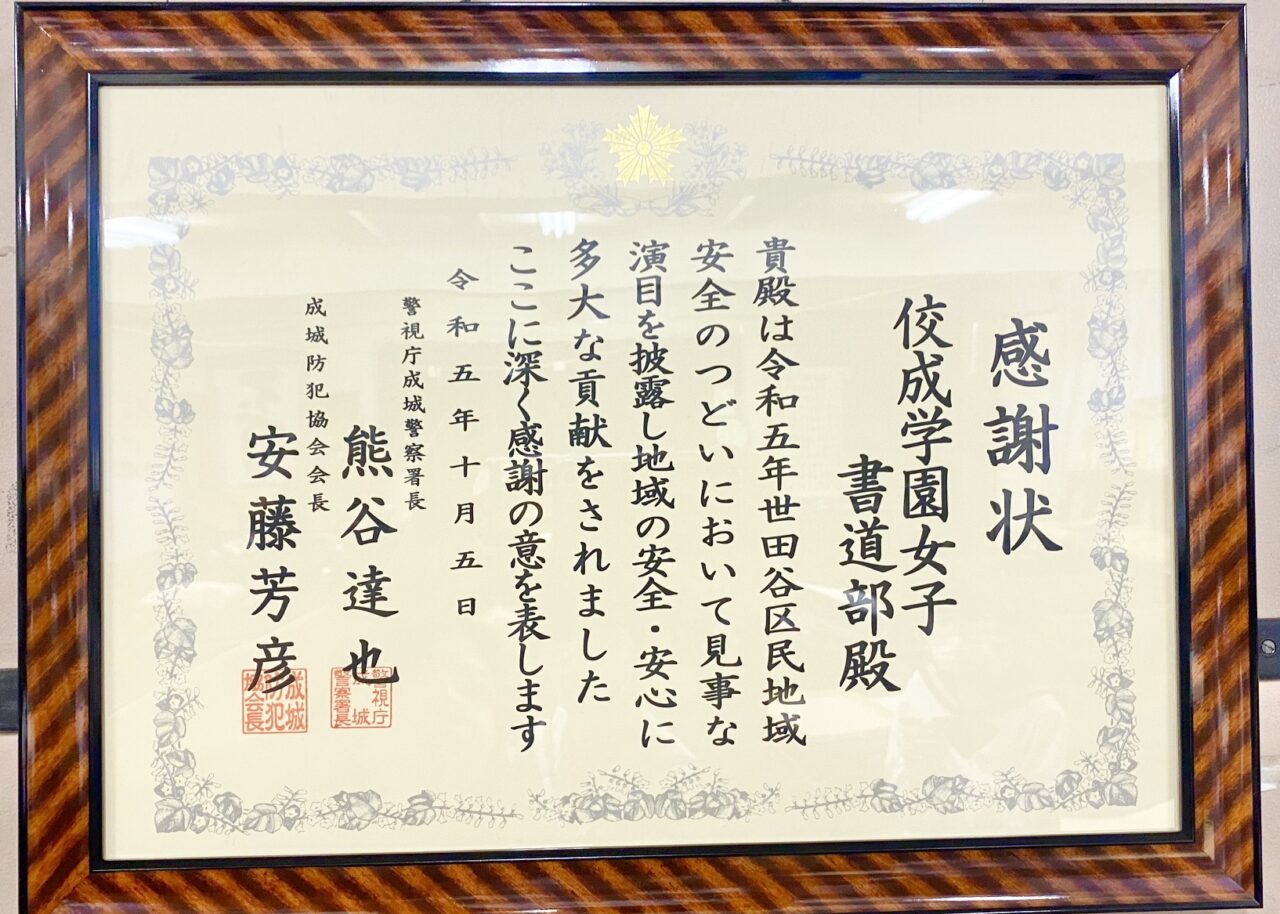 感謝状
佼成学園女子
書道部殿
貴殿は令和五年世田谷区民地域
安全のつどいにおいて見事な
演目を披露し地域の安全・安心に
多大な貢献をされました
ここに深く感謝の意を表します
令和五年十月五日
警視庁成城警察署長
熊谷達也
警視庁
成城
警察署長
成城防犯協会会長
安藤芳彦
成城
防犯
協会会長